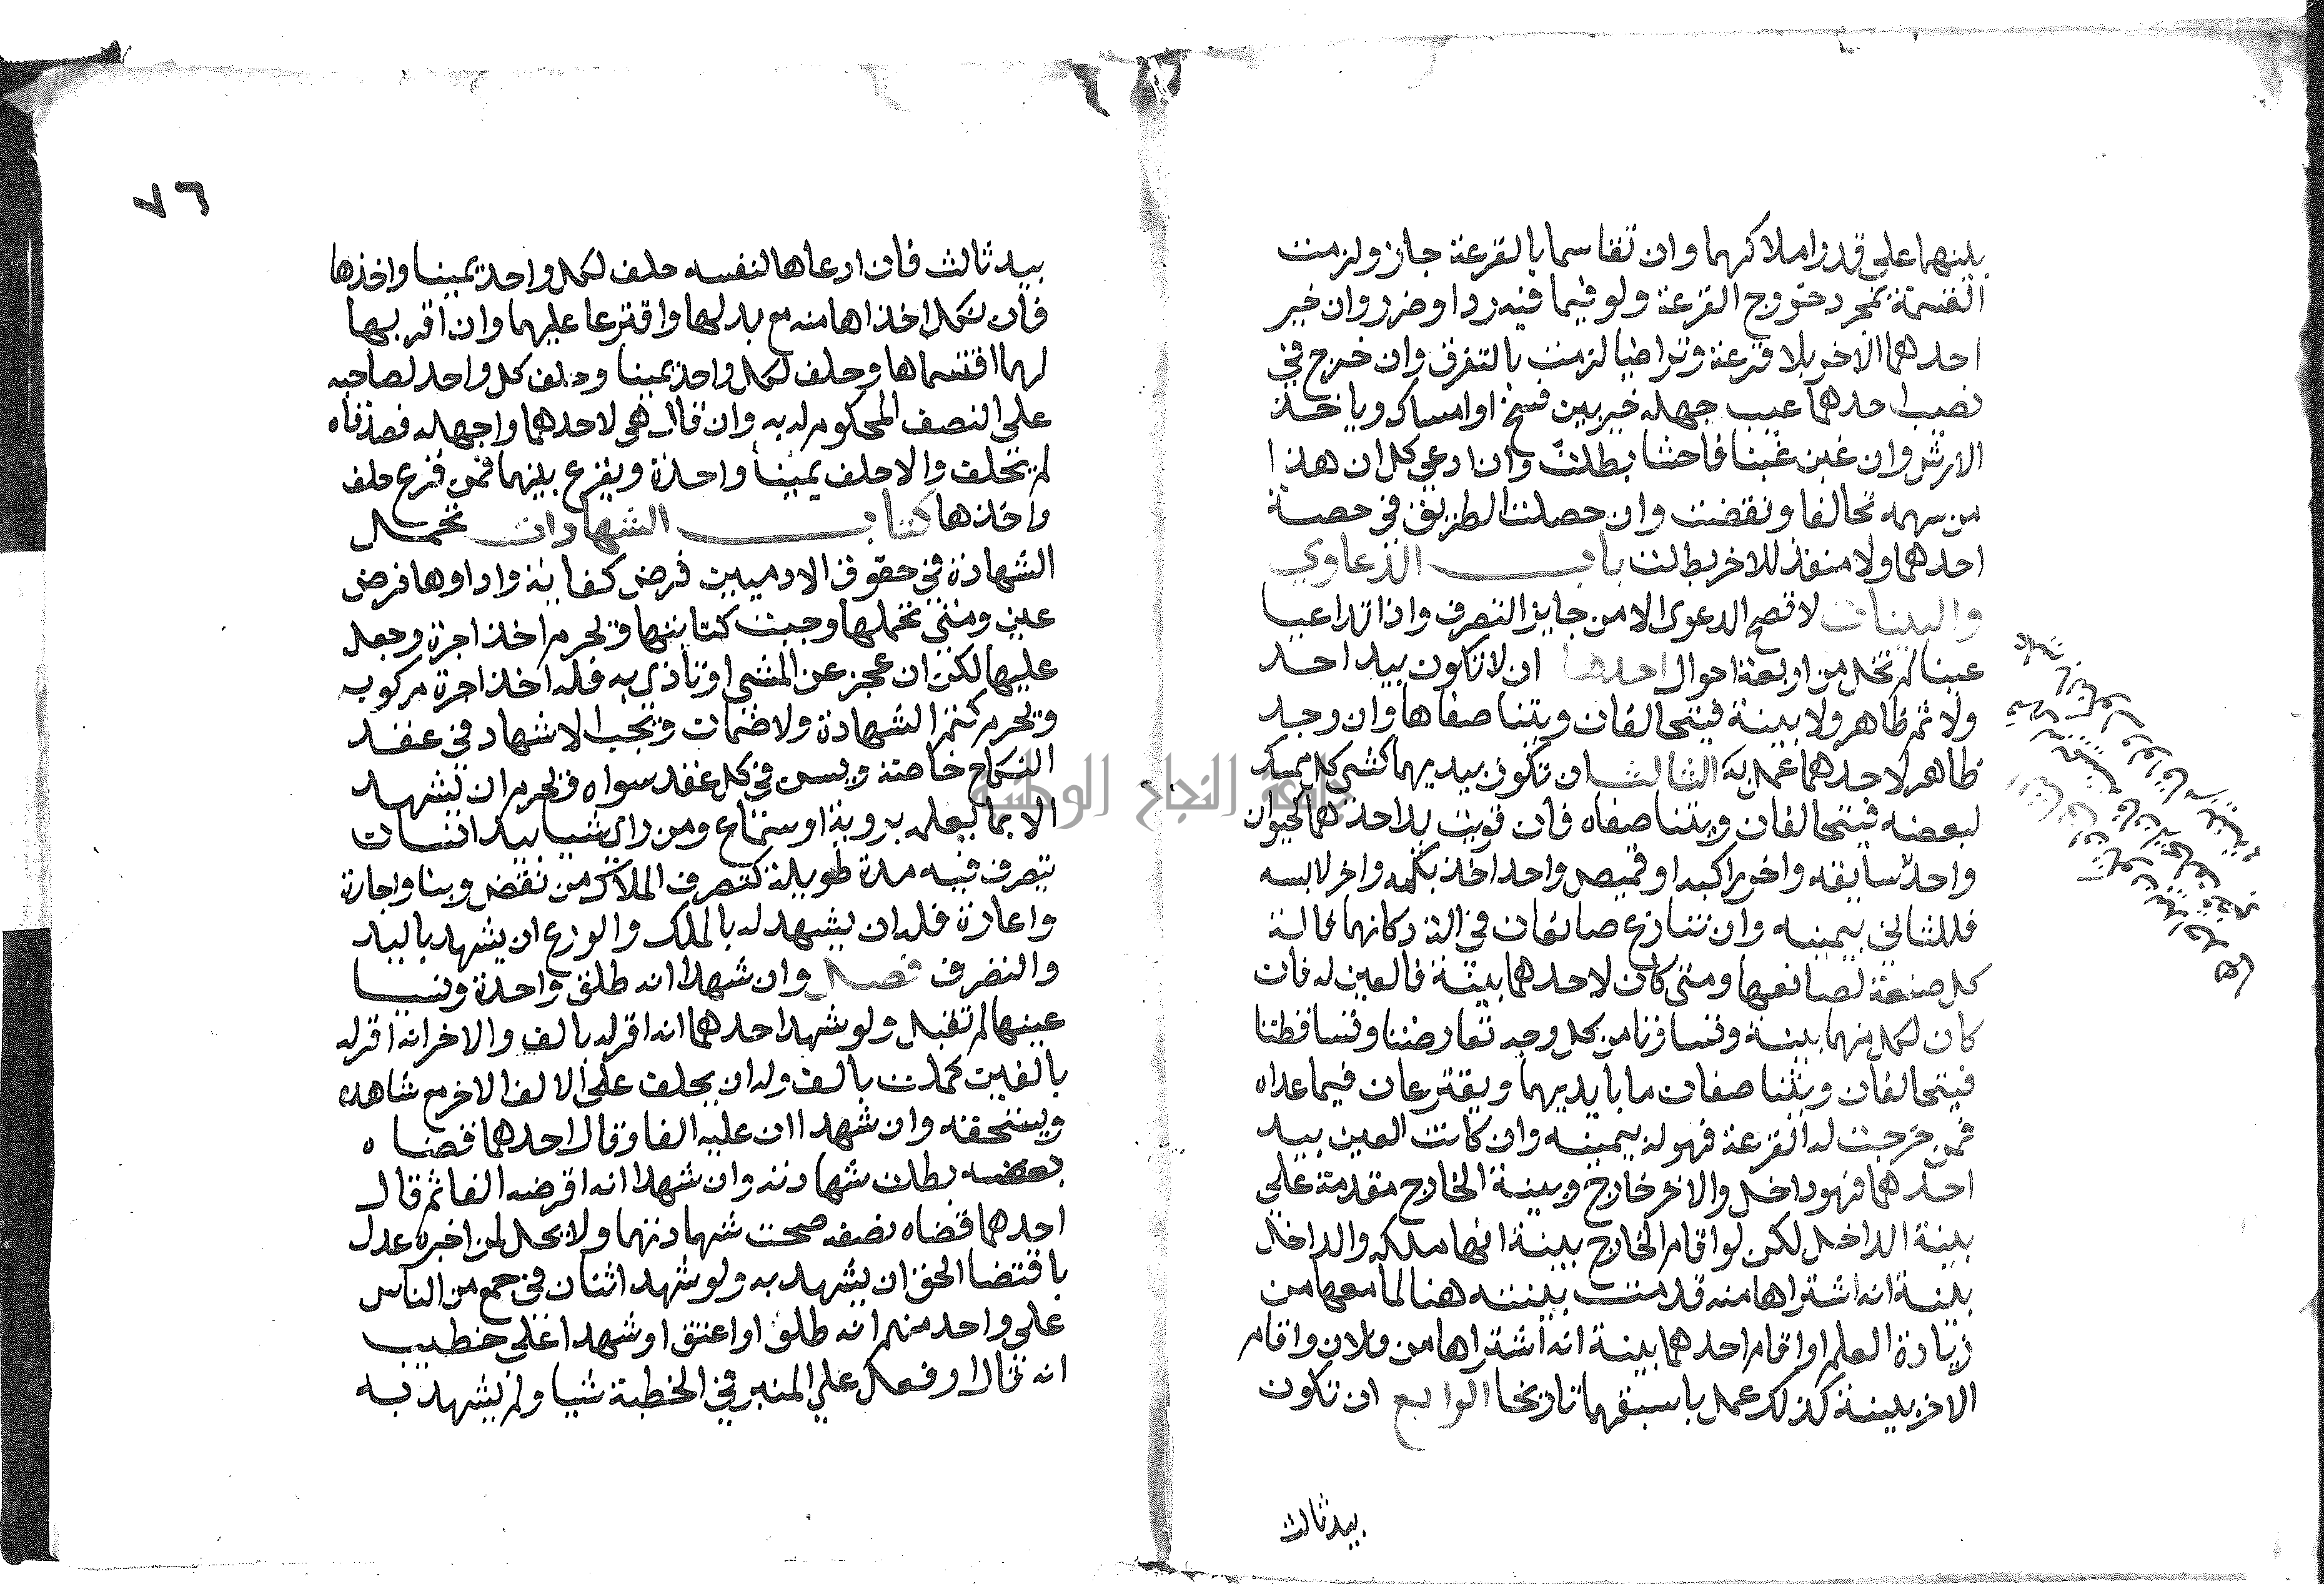 بينهما علي قدر املاكهما وان تقاسما بالقرعة جاز ولزمت
القسمة بمجرد خروج القرعة ولو فيما فيه رد او ضرر وان خير
احدهما الاخر بلا قرعة وتراضيا لزمت بالتفرق وان خرج في
نصيب احدهما عيب جهله خير بين فسخ او امساك وياخذ
الارش وان غبن غبنا فاحشا بطلت وان ادعي كل ان هذا
من سهمه تحالفا ونقضت وان حصلت الطريق في حصة
احدهما ولا منفذ للاخر بطلت باب الدعاوي
والبينات لا تصح الدعوى الا من جايز التصرف واذا تداعيا
عينا لم تخل من اربعة احوال احدها ان لا تكون بيد احد
ولا ثم ظاهر ولا بينة فيتحالفان ويتناصفاها وان وجد
ظاهر لاحدهما عمل به الثالث ان تكون بيديهما كشي كل يمسك
لبعضه فيتحالفان ويتناصفاه فان قويت يد احدهما كحيوان
واحد سايقه واخر راكبه او قميص واحد اخذ بكمه واخر لابسه
فللثاني بيمينه وان تنازع صانعان في الة دكانهما فالة
كل صنعة لصانعها ومتى كان لاحدهما بينة فالعين له فان
كان لكل منهما بينة وتساوتا من كل وجه تعارضتا وتساقطتا
فيتحالفان ويتناصفان ما بايديهما ويقترعان فيما عداه
فمن خرجت له القرعة فهو له بيمينه وان كانت العين بيد
احدهما فهو داخل والاخر خارج وبينة الخارج مقدمة علي
بينة الداخل لكن لو اقام الخارج بينة انها ملكه والداخل
بينة انه اشتراها منه قدمت بينته هنا لما معها من
زيادة العلم او اقام احدهما بينة انه اشتراها من فلان واقام
الاخر بينة كذلك عمل باسبقهما تاريخا الرابع ان تكون
بيد ثالث
٧٦
بيد ثالث فان ادعاها لنفسه حلف لكل واحد يمينا واخذها
فان نكل اخذاها منه مع بدلها واقترعا عليهما وان اقر بها
لهما اقتسماها وحلف لكل واحد يمينا وحلف كل واحد لصاحبه
علي النصف المحكوم له به وان قال هي لاحدهما واجهله فصدقاه
لم يحلف والا حلف يمينا واحدة ويقرع بينهما فمن قرع حلف
واخذها كتاب الشهادات تحمل
الشهادة في حقوق الادميين فرض كفاية واداوها فرض
عين ومتي تحملها وجبت كتابتها وتحرم اخذ اجرة وجعل
عليها لكن ان عجز عن المشي او تاذي به فله اخذ اجرة مركوب
وتحرم كتم الشهادة ولا ضمان ويجب الاشهاد في عقد
النكاح خاصة ويسن في كل عقد سواه وتحرم ان يشهد
الا بما يعلمه بروية او سماع ومن راى شيا بيد انسان
يتصرف فيه مدة طويلة كتصرف الملاك من نقض وبنا واجارة
واعارة فله ان يشهد له بالملك والورع ان يشهد باليد
والتصرف فصل وان شهدا انه طلق واحدة ونسيا
عينها لم تقبل ولو شهد احدهما انه اقر له بالف والاخر انه اقر له
بالفين كملت بالف وله ان يحلف علي الالف الاخر مع شاهده
ويستحقه وان شهدا ان عليه الفا وقال احدهما قضاه
بعضه بطلت شهادته وان شهدا انه اقرضه الفا ثم قال
احدهما قضاه نصفه صحت شهادتهما ولا يحل لمن اخبره عدل
باقتضا الحق ان يشهد به ولو شهد اثنان في جمع من الناس
علي واحد منهم انه طلق او اعتق او شهدا علي خطيب
انه قال او فعل علي المنبر في الخطبة شيا ولم يشهد به
جامعة النجاح الوطنية